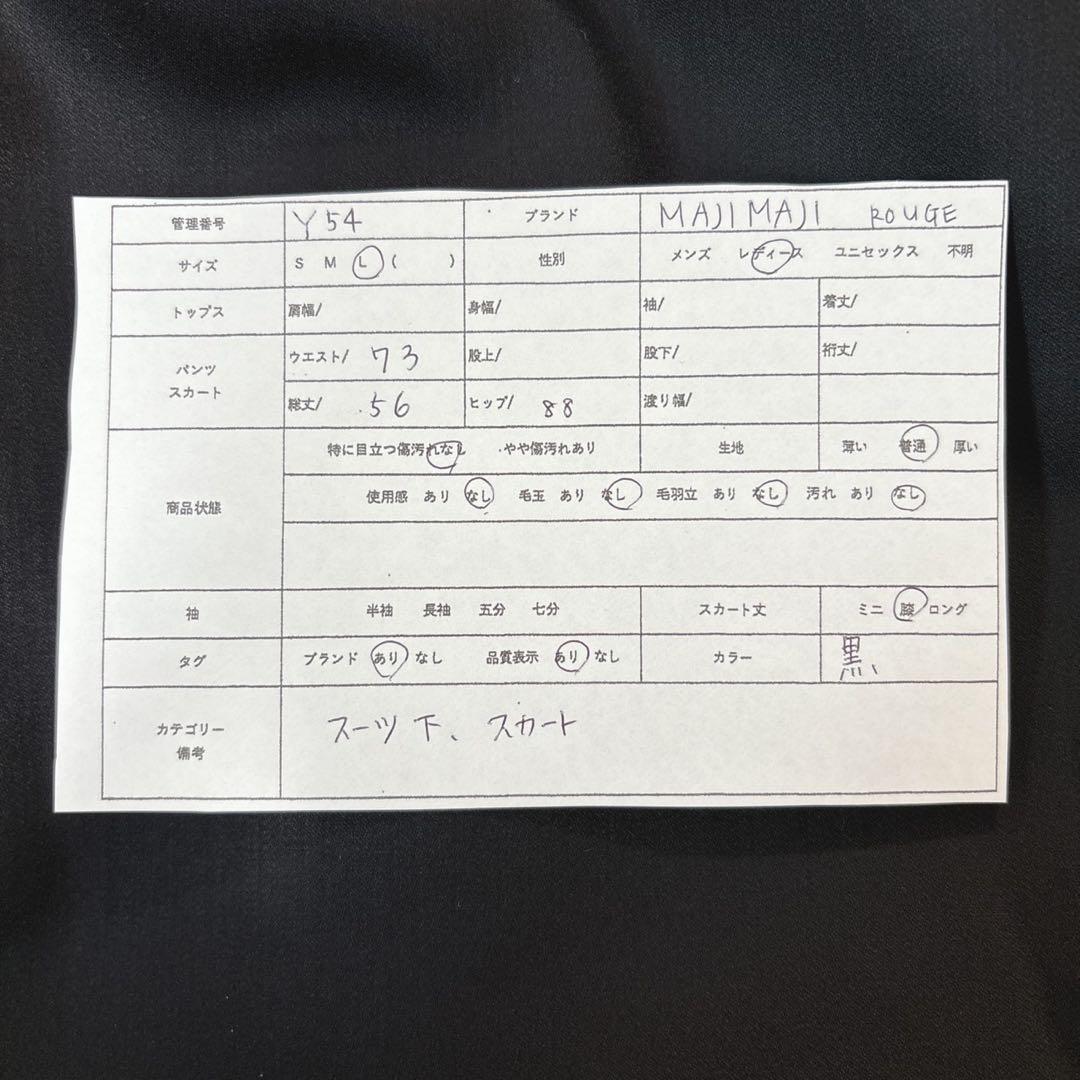 管理番号 Y54 ブランド MAJIMAJI ROUGE
サイズ S M L ( ) 性別 メンズ レディース ユニセックス 不明
トップス 肩幅/ 身幅/ 袖/ 着丈/
パンツ
スカート
ウエスト/ 73 股上/ 股下/ 裄丈/
総丈/ 56 ヒップ/ 88 渡り幅/
商品状態
特に目立つ傷汚れなし ・やや傷汚れあり 生地 薄い 普通 厚い
使用感 あり なし 毛玉 あり なし 毛羽立 あり なし 汚れ あり なし
袖 半袖 長袖 五分 七分 スカート丈 ミニ 膝 ロング
タグ ブランド あり なし 品質表示 あり なし カラー 黒
カテゴリー
備考
スーツ下、スカート